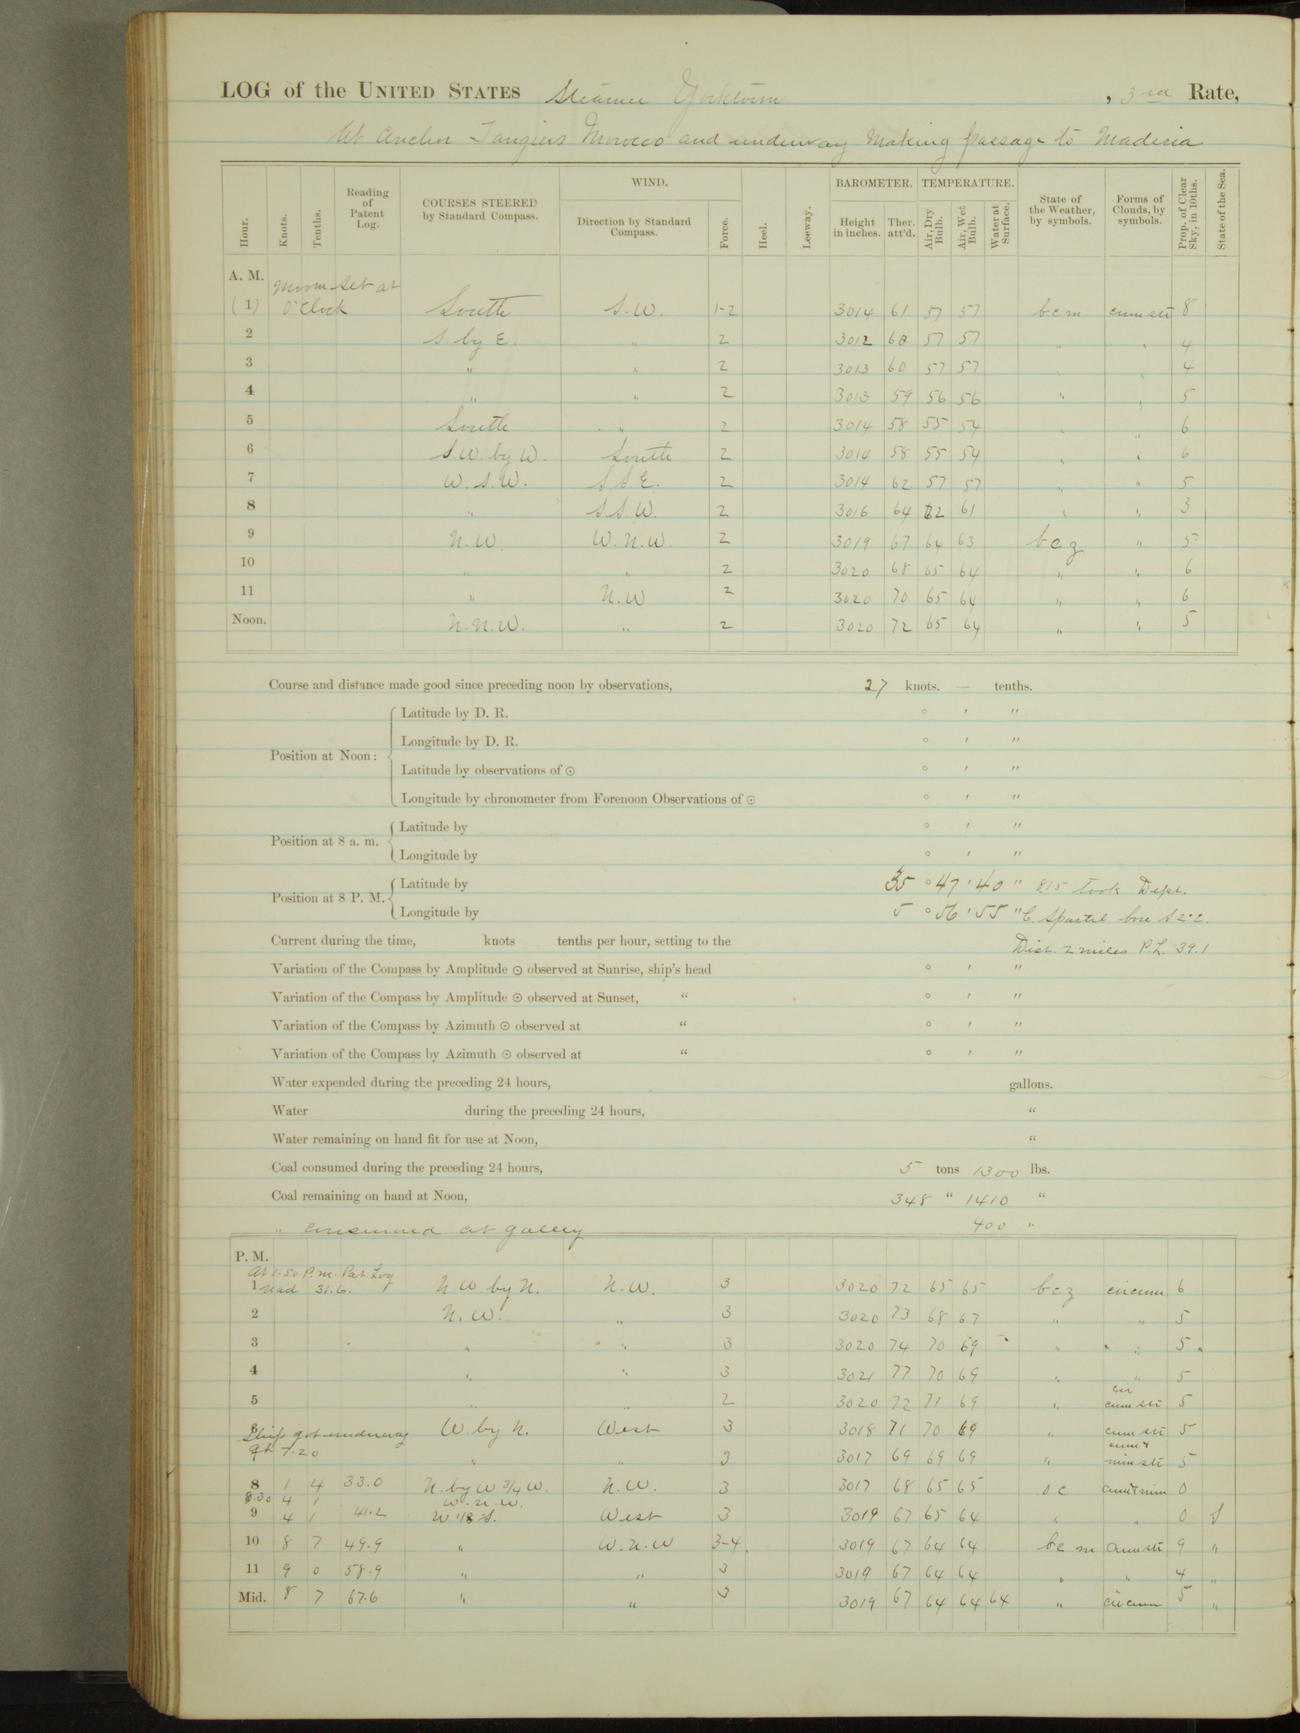 LOG of the UNITED STATES Steamer Yorktown , 3rd Rate,
At Anchor Tangiers Morocco and underway making passage to Madeira
Hour. Knots. Tenths. Reading of Patent Log. COURSES STEERED by Standard Compass. WIND. Direction by Standard Compass. Force. Heel. Leeway. BAROMETER. Height in inches. Ther. att'd. TEMPERATURE. Air, Dry Bulb. Air, Wet Bulb. Water at Surface. State of the Weather, by symbols. Forms of Clouds, by symbols. Prop. of Clear Sky, in 10ths. State of the Sea.
A. M. Moon set at
(1) O'Clock South S.W. 1-2 3014 61 57 57 bcm cum str 8
2 S. by E. " 2 3012 60 57 57 " " 4
3 " " 2 3013 60 57 57 " " 4
4 " " 2 3013 59 56 56 " " 5
5 South " 2 3014 58 55 54 " " 6
6 S.W. by W. South 2 3014 58 55 54 " " 6
7 W.S.W. S.S.E. 2 3014 62 57 57 " " 5
8 " S.S.W. 2 3016 64 62 61 " " 3
9 N.W. W.N.W. 2 3019 67 64 63 bcz " 5
10 " " 2 3020 68 65 64 " " 6
11 " N.W 2 3020 70 65 64 " " 6
Noon. N.N.W. " 2 3020 72 65 64 " " 5
Course and distance made good since preceding noon by observations, 27 knots. — tenths.
Position at Noon:
Latitude by D. R. ° ' "
Longitude by D. R. ° ' "
Latitude by observations of ☉ ° ' "
Longitude by chronometer from Forenoon Observations of ☉ ° ' "
Position at 8 a. m.
Latitude by ° ' "
Longitude by ° ' "
Position at 8 P. M.
Latitude by 35 ° 47 ' 40 " 8.15 took Dept.
Longitude by 5 ° 56 ' 55 " C. Spartel bore S 2° E.
Current during the time, knots tenths per hour, setting to the Dist. 2 miles P.L. 39.1
Variation of the Compass by Amplitude ☉ observed at Sunrise, ship's head ° ' "
Variation of the Compass by Amplitude ☉ observed at Sunset, " ° ' "
Variation of the Compass by Azimuth ☉ observed at " ° ' "
Variation of the Compass by Azimuth ☉ observed at " ° ' "
Water expended during the preceding 24 hours, gallons.
Water during the preceding 24 hours, "
Water remaining on hand fit for use at Noon, "
Coal consumed during the preceding 24 hours, 5 tons 1300 lbs.
Coal remaining on hand at Noon, 348 " 1410 "
" consumed at galley 400 "
P. M.
At 1.50 P.m. Pat. Log
1 read 31.6. N W by N. N.W. 3 3020 72 65 65 bcz cir cum 6
2 N.W. " 3 3020 73 68 67 " " 5
3 " " 3 3020 74 70 69 " " 5
4 " " 3 3021 77 70 69 " " 5
5 " " 2 3020 72 71 69 " cir cum str 5
6 Ship got underway W. by N. West 3 3018 71 70 69 " cum str 5
7 at 7.20 " " 3 3017 69 69 69 " cum & nim str 5
8 1 4 33.0 N. by W 3/4 W. N.W. 3 3017 68 65 65 oc cum & nim 0
8.30 4 1 W.N.W.
9 4 1 41.2 W 1/8 S. West 3 3019 67 65 64 " " 0 S
10 8 7 49.9 " W.N.W 3-4 3019 67 64 64 bcm cum str 9 "
11 9 0 58.9 " " 3 3019 67 64 64 " " 4 "
Mid. 8 7 67.6 " " 3 3019 67 64 64 64 " cir cum 5 "